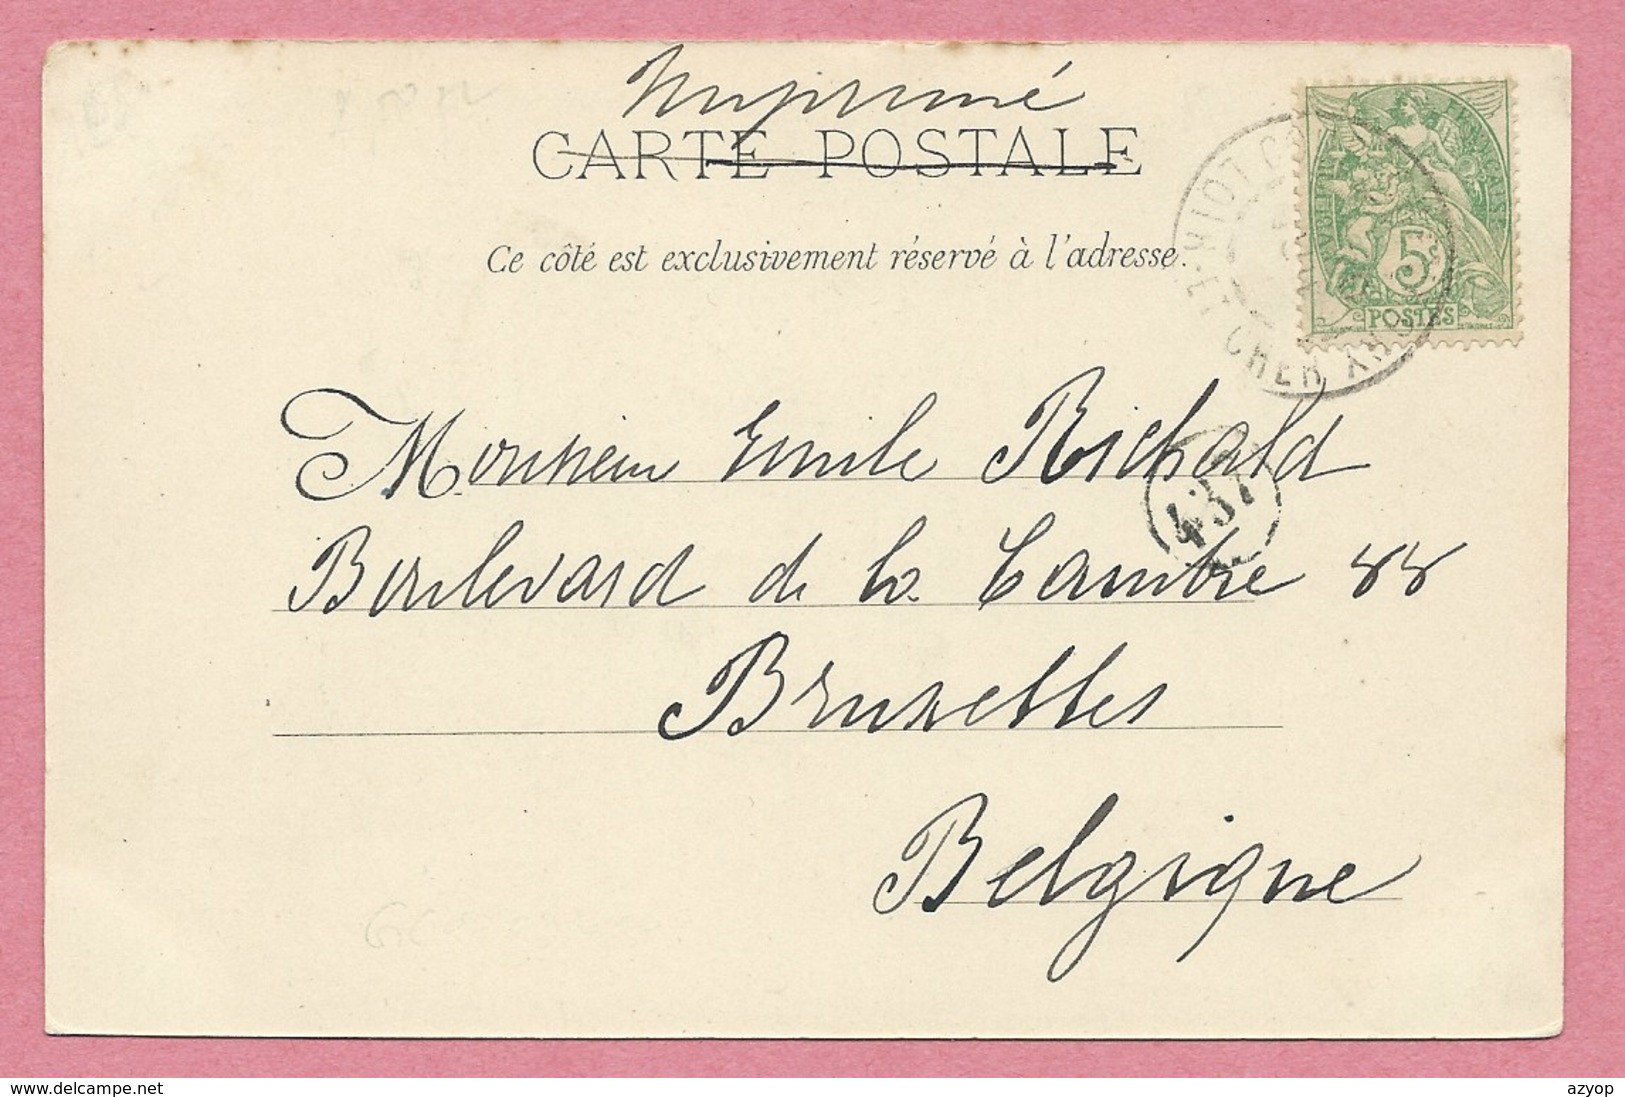 Imprimé
CARTE POSTALE
Ce côté est exclusivement réservé à l'adresse.
5c
POSTES
ET CHER
Monsieur Emile Richald
437
Boulevard de la Cambre 88
Bruxelles
Belgique
www.delcampe.net
azyop